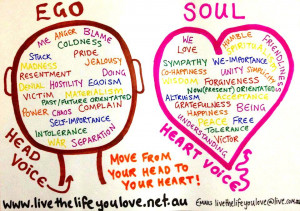 EGO
ME ANGER BLAME
COLDNESS
STUCK PRIDE
MADNESS JEALOUSY
RESENTMENT DOING
DENIAL HOSTILITY EGOISM
VICTIM MATERIALISM
PAST/FUTURE ORIENTATED
POWER CHAOS COMPLAIN
SELF-IMPORTANCE
INTOLERANCE
WAR SEPARATION
HEAD VOICE
SOUL
WE HUMBLE FRIENDLINESS
LOVE SPIRITUALISM
SYMPATHY WE-IMPORTANCE
CO-HAPPINESS UNITY SIMPLICITY
WISDOM FORGIVENESS
NOW(PRESENT) ORIENTATED
ALTRUISM ACCEPTANCE
GRATEFULNESS BEING
HAPPINESS
UNDERSTANDING PEACE FREE
TOLERANCE
VICTOR
HEART VOICE
MOVE FROM
YOUR HEAD TO
YOUR HEART!
www.livethelifeyoulove.net.au
EMAIL livethelifeyoulove@live.com.au